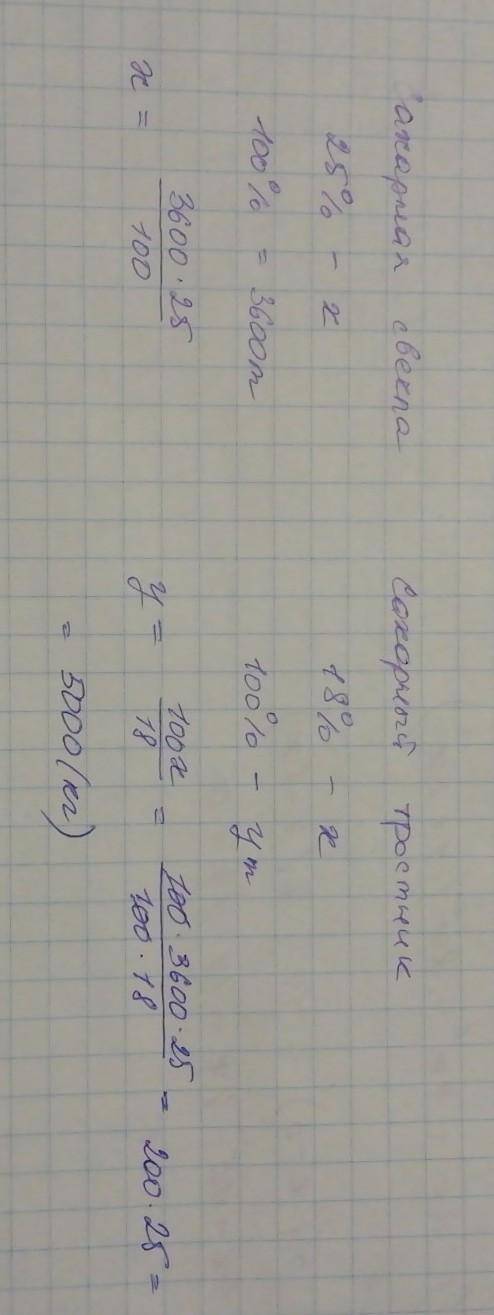 Сахарная свекла
25% - x
100% = 3600т
x = 3600 · 25 / 100
Сахорный тростник
18% - x
100% - y т
y = 100x / 18 = 100 · 3600 · 25 / 100 · 18 = 200 · 25 =
= 5000 (кг)